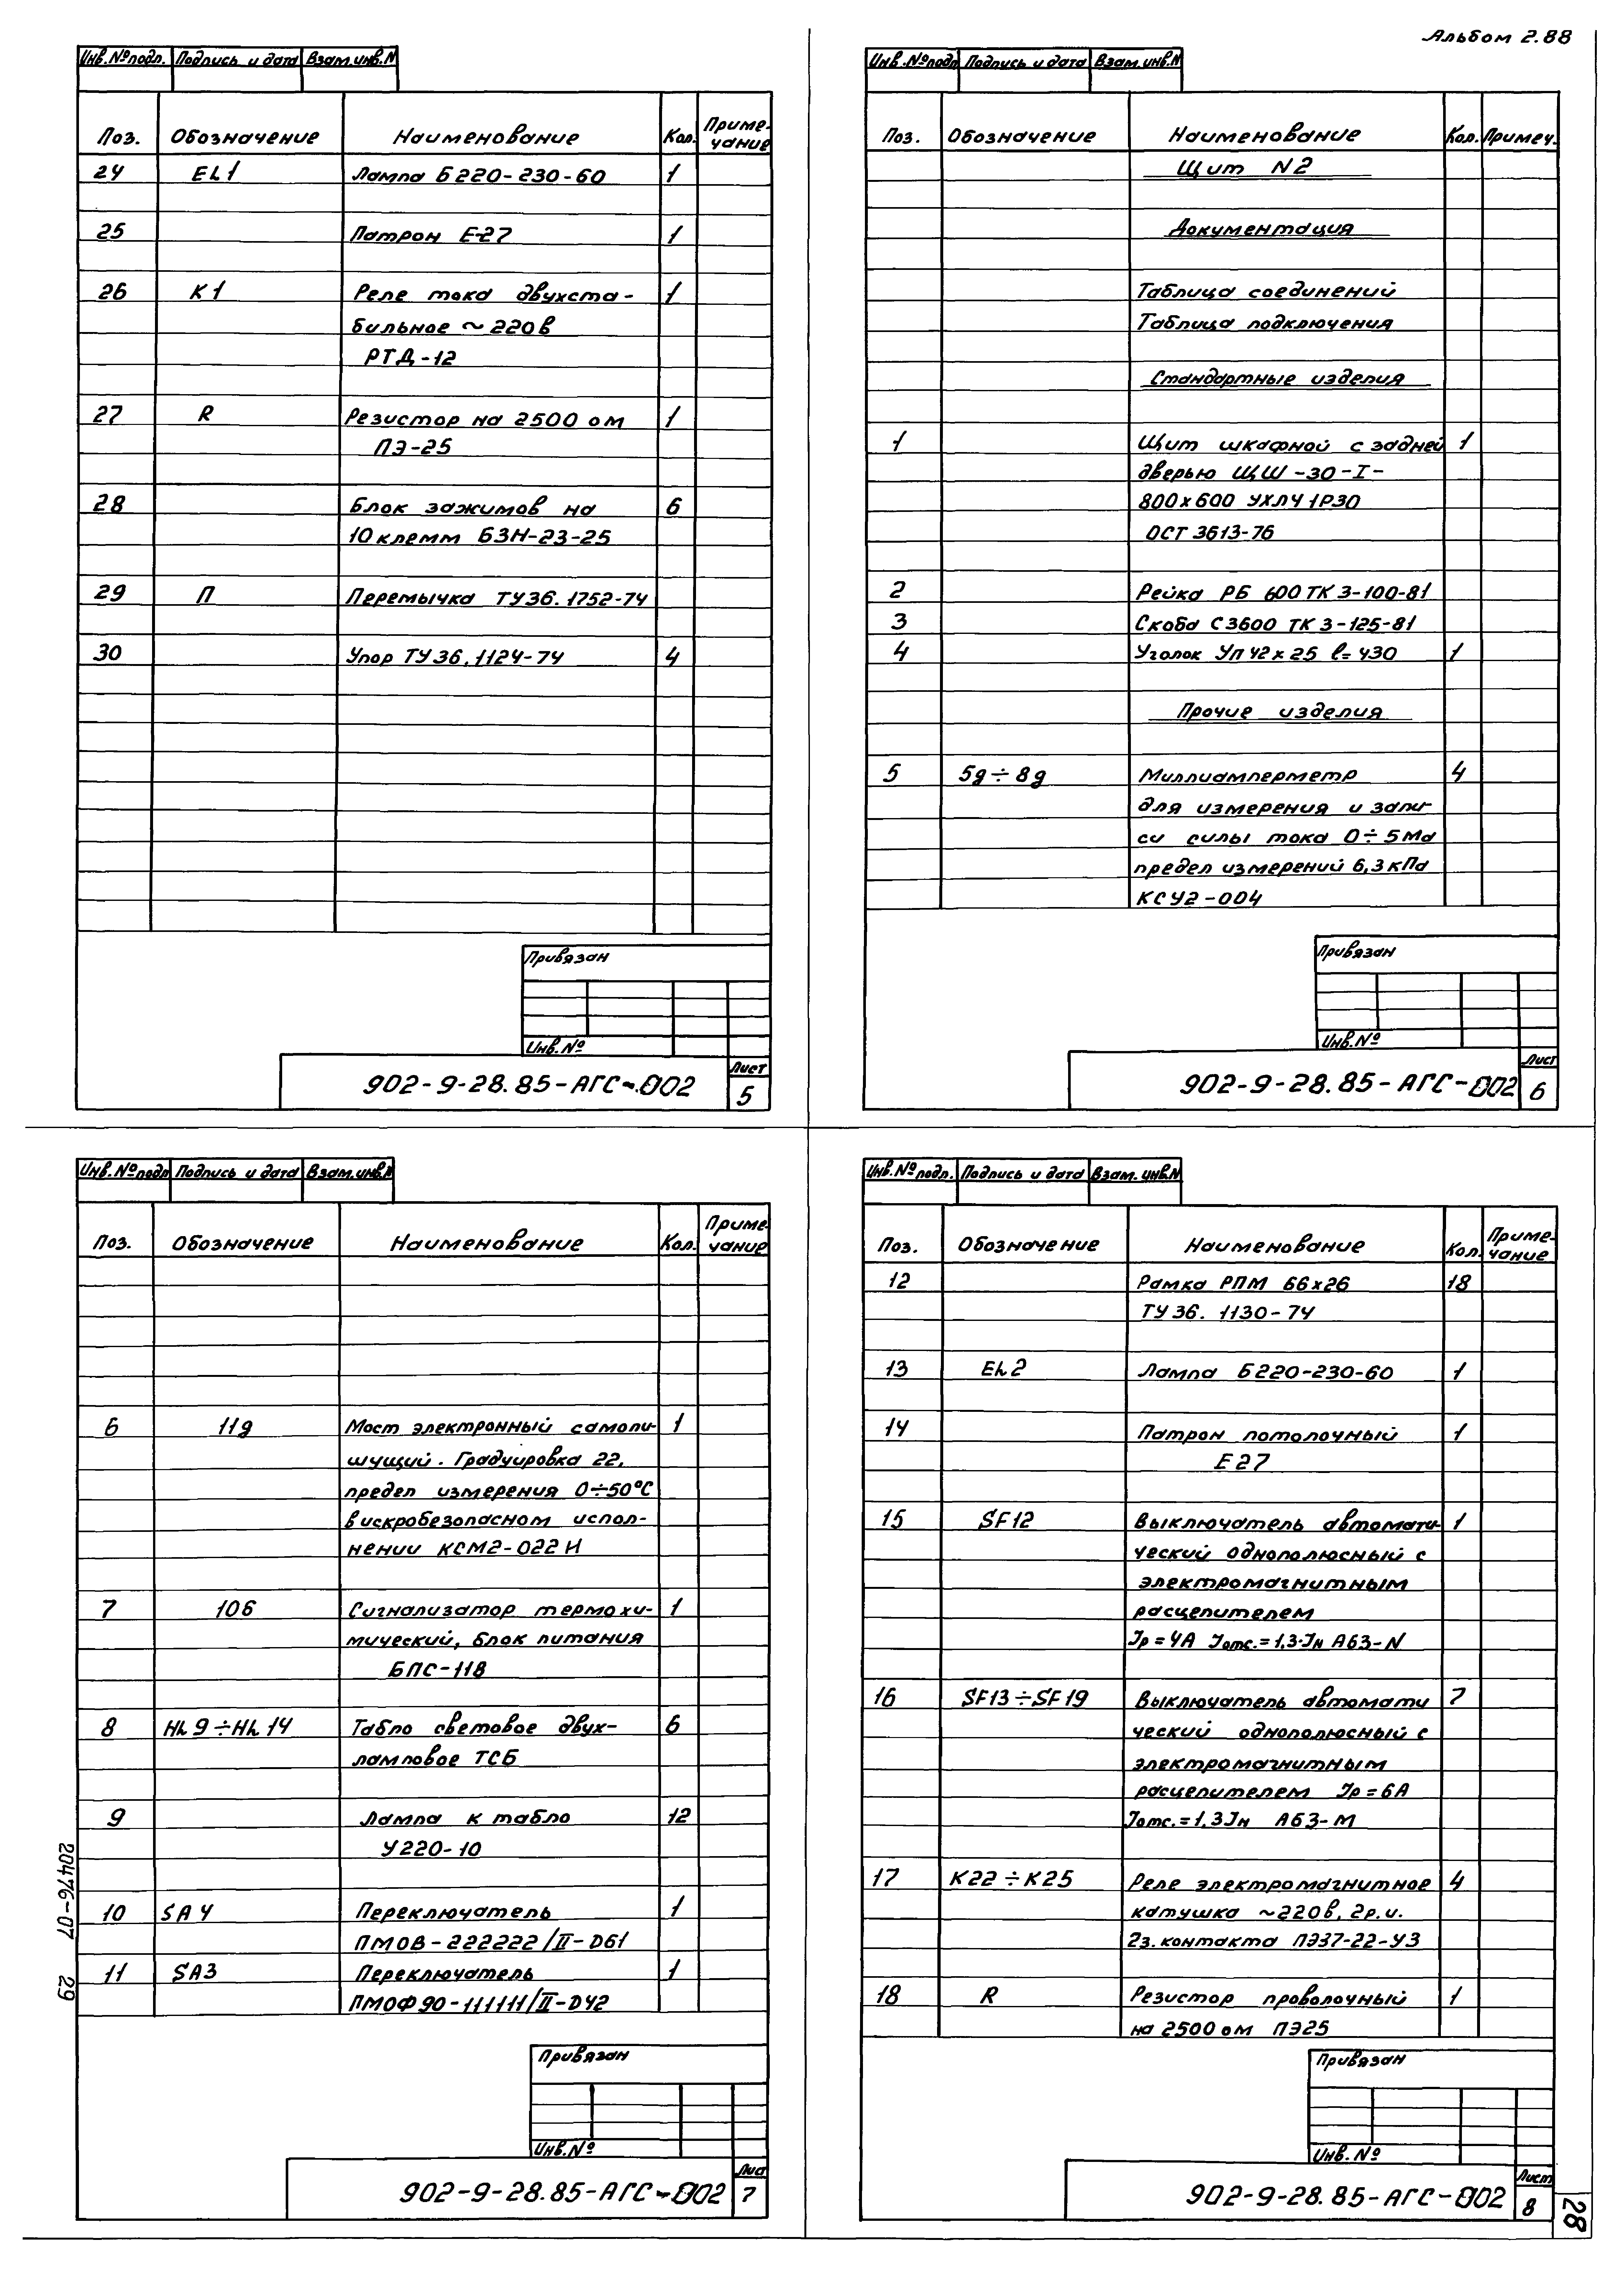 Альбом 2.88
Инв. № подл. Подпись и дата Взам. инв. N
Поз. Обозначение Наименование Кол. Приме-
чание
24 EL1 Лампа Б220-230-60 1
25 Патрон Е-27 1
26 К1 Реле тока двухста- 1
бильное ~220в
РТД-12
27 R Резистор на 2500 ом 1
ПЭ-25
28 Блок зажимов на 6
10 клемм БЗН-23-25
29 П Перемычка ТУ36.1752-74
30 Упор ТУ36.1124-74 4
Привязан
Инв. №
902-9-28.85-АГС-002
Лист
5
Инв. № подл. Подпись и дата Взам. инв. N
Поз. Обозначение Наименование Кол. Примеч.
Щит N2
Документация
Таблица соединений
Таблица подключения
Стандартные изделия
1 Щит шкафной с задней 1
дверью ЩШ-30-I-
800х600 УХЛ4 IP30
ОСТ 3613-76
2 Рейка РБ 600 ТК 3-100-81
3 Скоба С3600 ТК 3-125-81
4 Уголок УП 42х25 l=430 1
Прочие изделия
5 5g÷8g Миллиамперметр 4
для измерения и запи-
си силы тока 0÷5Ма
предел измерений 6,3 кПа
КСУ2-004
Привязан
Инв. №
902-9-28.85-АГС-002
Лист
6
Инв. № подл. Подпись и дата Взам. инв. N
Поз. Обозначение Наименование Кол. Приме-
чание
6 11g Мост электронный самопи- 1
шущий. Градуировка 22,
предел измерения 0÷50°С
в искробезопасном испол-
нении КСМ2-022 И
7 10б Сигнализатор термохи- 1
мический, блок питания
БПС-118
8 HL9÷HL14 Табло световое двух- 6
ламповое ТСБ
9 Лампа к табло 12
У220-10
10 SA4 Переключатель 1
ПМОВ-222222/II-D61
11 SA3 Переключатель 1
ПМОФ90-111111/II-D42
Привязан
Инв. №
902-9-28.85-АГС-002
Лист
7
20476-07 29
Инв. № подл. Подпись и дата Взам. инв. N
Поз. Обозначение Наименование Кол. Приме-
чание
12 Рамка РПМ 66х26 18
ТУ36. 1130-74
13 EL2 Лампа Б220-230-60 1
14 Патрон потолочный 1
Е27
15 SF12 Выключатель автомати- 1
ческий однополюсный с
электромагнитным
расцепителем
Jр=4А Jотс.=1,3·Jн А63-N
16 SF13÷SF19 Выключатель автомати 7
ческий однополюсный с
электромагнитным
расцепителем Jр=6А
Jотс.=1,3Jн А63-М
17 К22÷К25 Реле электромагнитное 4
катушка ~220в, 2р.и.
2з. контакта ПЭ37-22-У3
18 R Резистор проволочный 1
на 2500 ом ПЭ25
Привязан
Инв. №
902-9-28.85-АГС-002
Лист
8
28